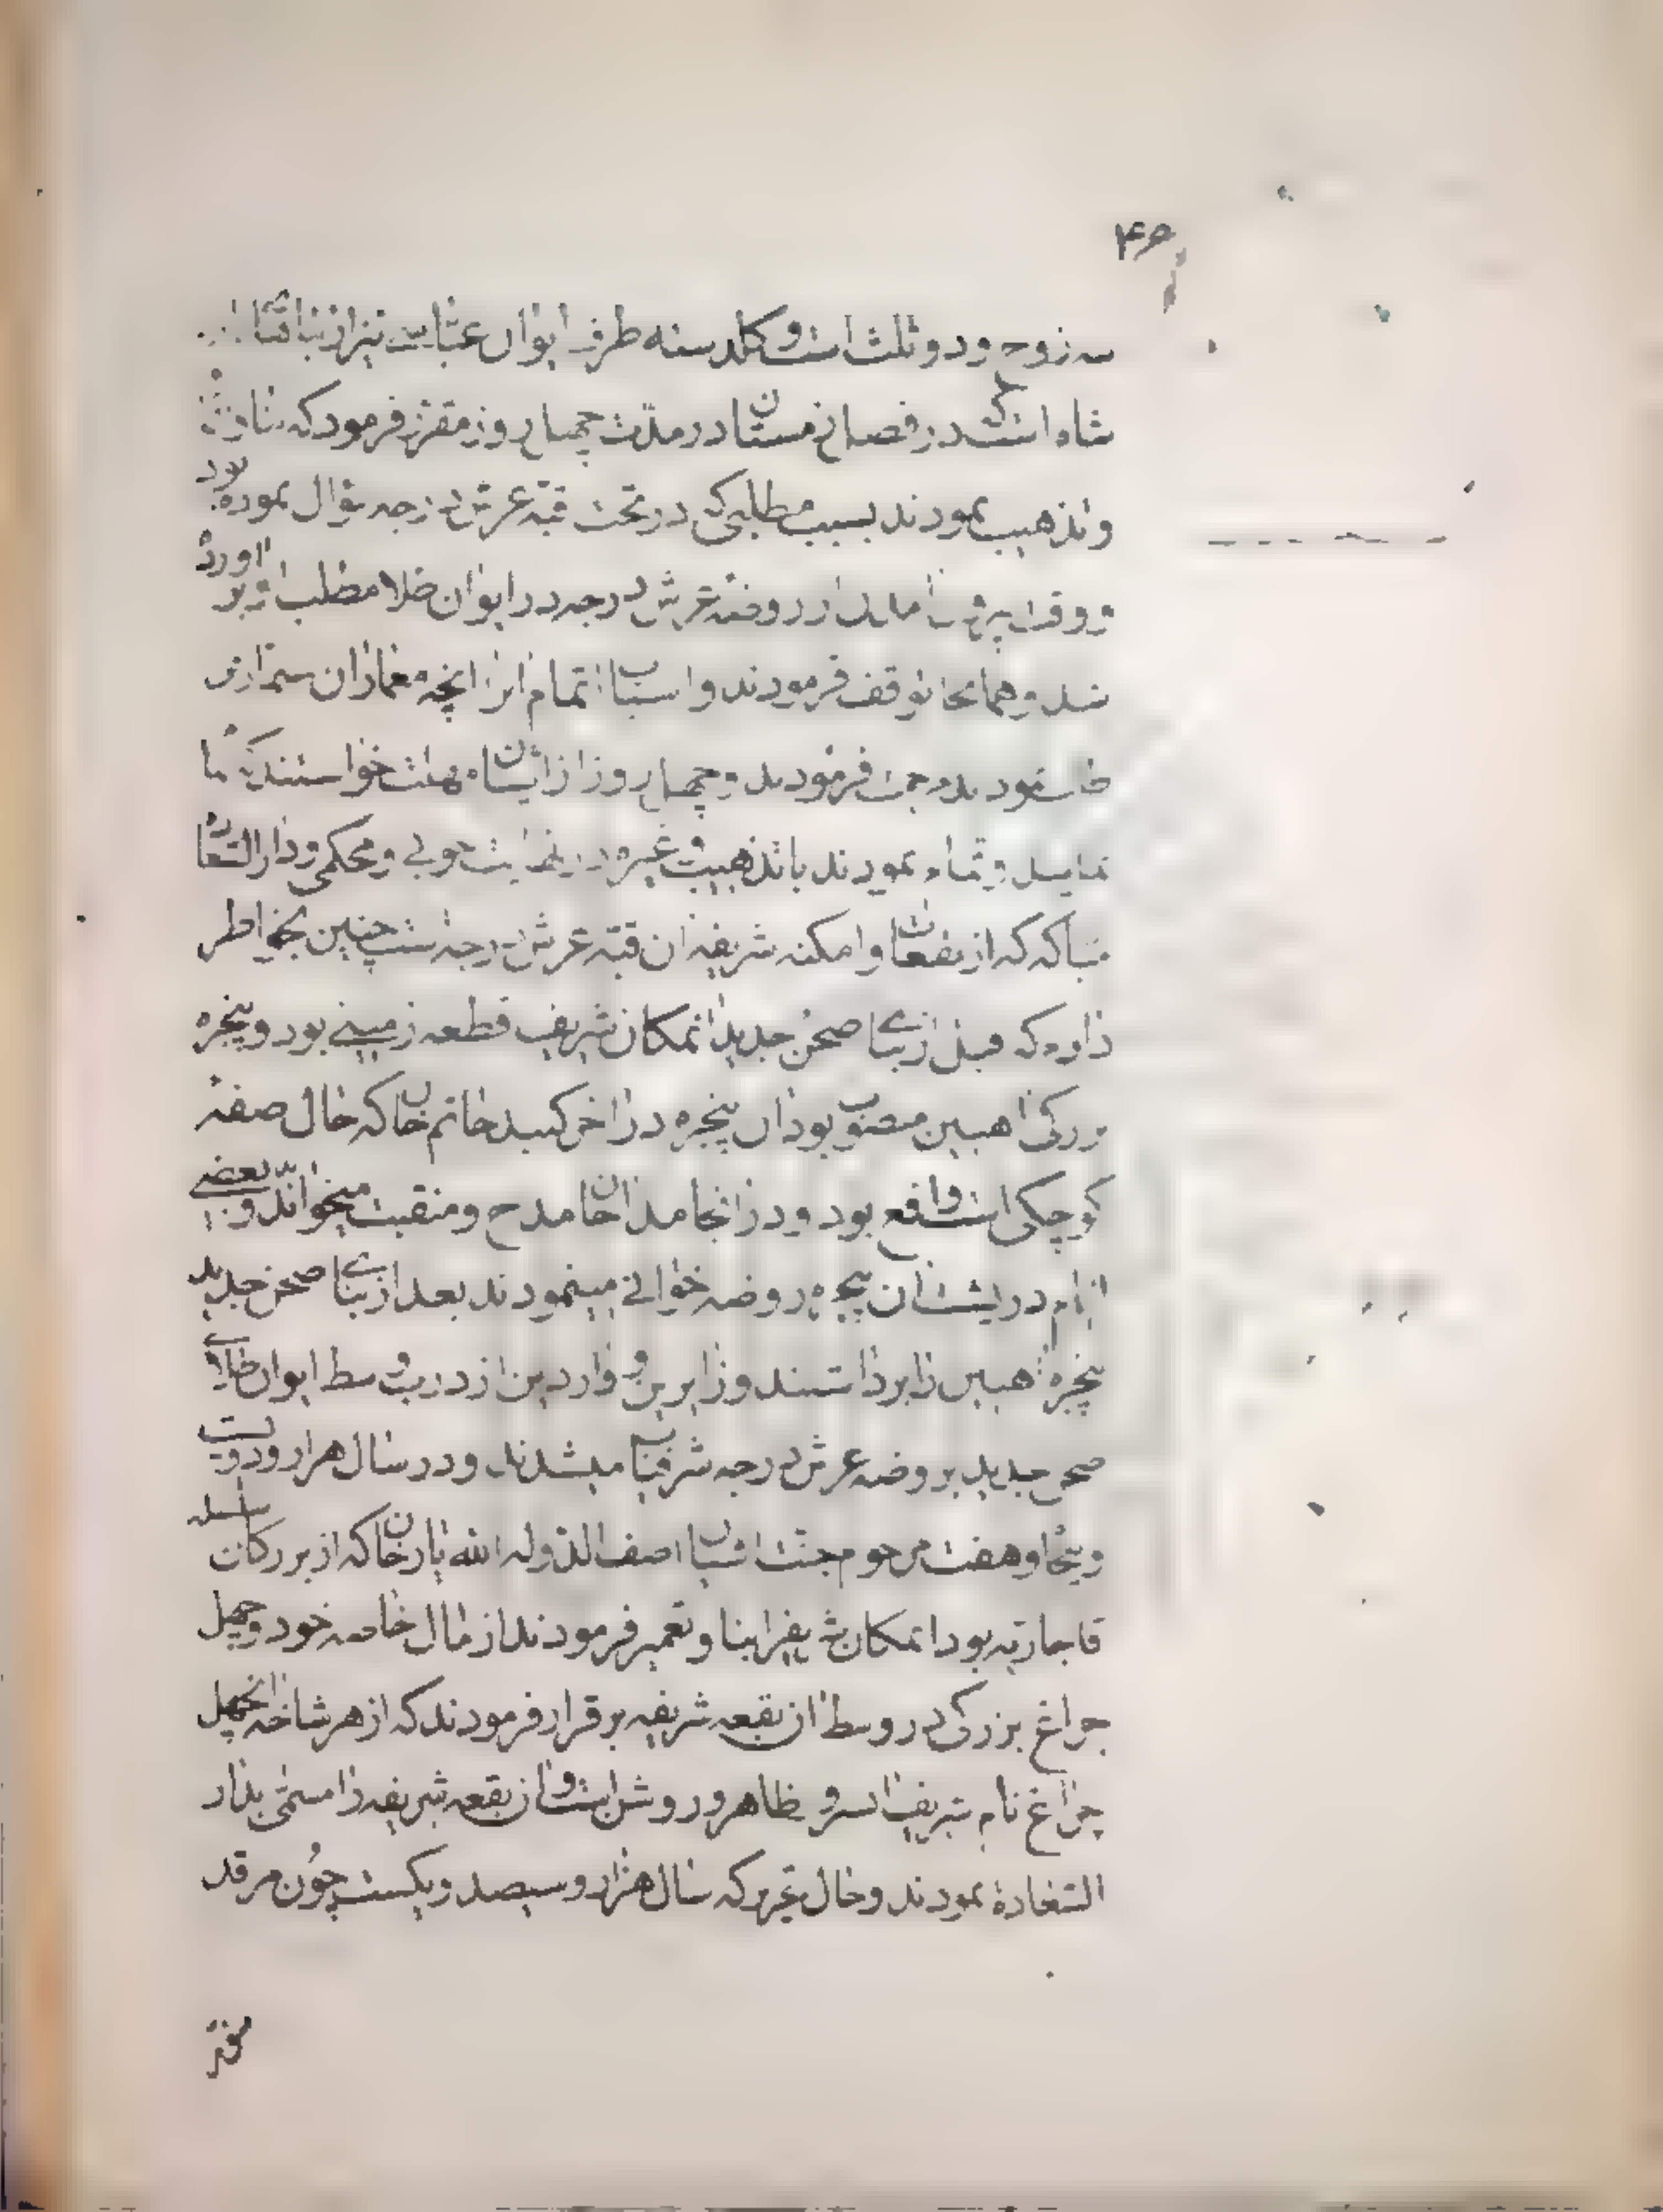 سه زوج و دو ثلث است و گلدسته طرف ایوان عباسی نیز از بناهای
شاه است که در فصل زمستان در مدت چهل روز مقرر فرمود که بنا و
و تذهیب نمودند بسبب مطلبی که در تحت قبه عرش درجه سؤال نموده بود
و وقت بیرون آمدن از روضه عرش درجه در ایوان طلا مطلب او بر آورده
شد و همانجا توقف فرمودند و اسباب اتمام آنرا آنچه معماران
نمودند مرحمت فرمودند و چهل روز از ایشان مهلت خواستند که بنا
نمایند و تمام نمودند با تذهیب و غیره در نهایت خوبی و محکمی و دار السعاده
مبارکه که از بقعات و امکنه شریفه آن قبه عرش درجه است چنین بخواطر
دارم که قبل از بنای صحن جدید آنمکان شریف قطعه زمینی بود و پنجره
بزرگی آهنین منصوب بود آن پنجره در آخر گنبد حاتم خان که حال صفه
کوچکی است واقع بود و در آنجا مداحان مدح و منقبت میخواندند و بعضی
ایام در پشت آن پنجره روضه خوانی مینمودند بعد از بنای صحن جدید
پنجره آهنین را برداشتند و زایرین و واردین از درب وسط ایوان طلای
صحن جدید بروضه عرش درجه شرفیاب میشدند و در سال هزار و دویست
و پنجاه و هفت مرحوم جنت آشیان آصف الدوله الله یار خان که از بزرکان سلسله
قاجاریه بود آنمکان شریف را بنا و تعمیر فرمودند از مال خاصه خود و چهل
چراغ بزرگی در وسط آن بقعه شریفه برقرار فرمودند که از هر شاخه آنچهل
چراغ نام شریف آنسرور ظاهر و روشن است و آن بقعه شریفه را مسمی بدار
السعادة نمودند و حال تحریر که سال هزار و سیصد و یکست چون مرقد